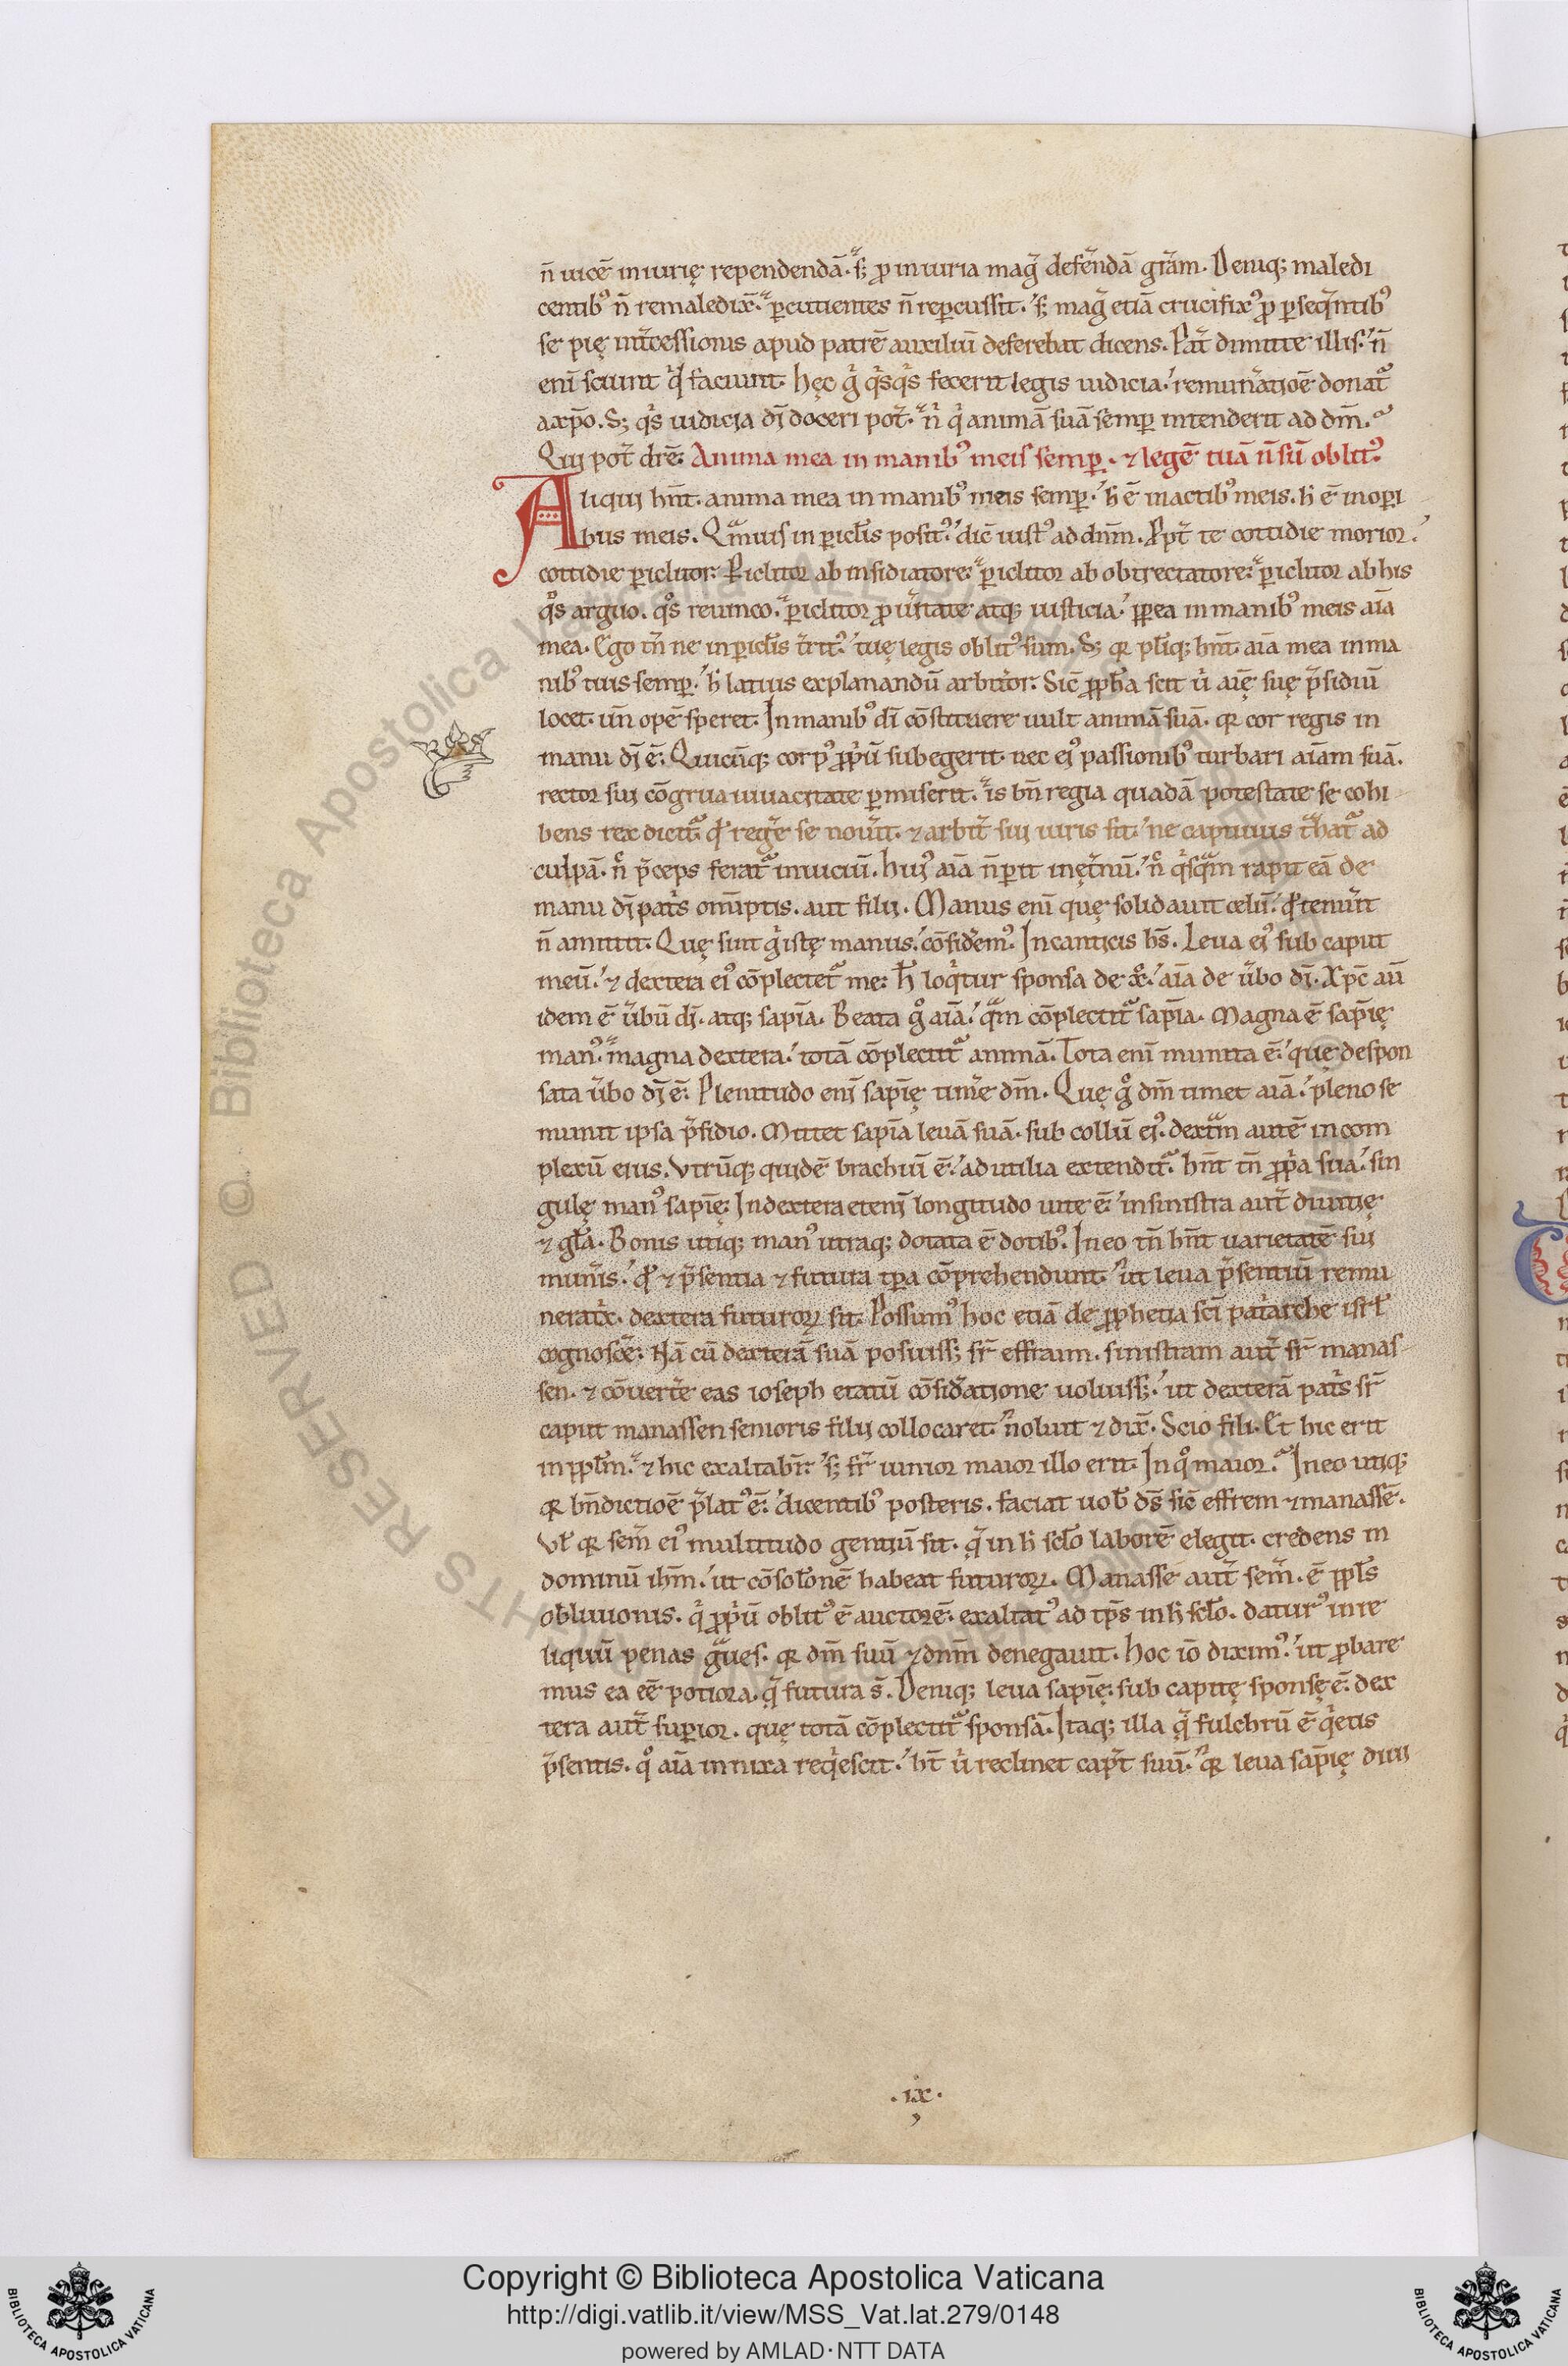 n̄ uicē iniurię rependendā. s; ꝓ iniuria mag̃ defe̾ndā gr̄am. Deniq; maledi
centib᾿ n̄ remaledix̄. ꝑcutientes n̄ reꝑcussit. s; mag̃ etiā crucifix᾿ ꝓ ꝑseq̃ntib᾿
se pię int̃cessionis apud patrē auxiliū deferebat dicens. Pat̃ dimitte illis. n̄
enī sciunt qͥd faciunt. hęc gͥ qͥsqͥs fecerit legis iudicia. remun̾atiōē donat᷑
a xp̄o. S; qͥs iudicia dī doceri pot̃. nͥ qͥ animā suā semꝑ intenderit ad dm̄.
Qui pot̃ dr̄e. Anima mea in manib᾿ meis semꝑ. ⁊ legē tuā n̄ sū oblit᾿.
Aliqui hn̄t. anima mea in manib᾿ meis semꝑ. h̄ ē in actib᾿ meis. h̄ ē in oꝑi
bus meis. Qᵃmuis in ꝑicl̄is posit᾿. dic̄ iust᾿ ad dn̄m. Ꝓpt̃ te cottidie morior.
cottidie ꝑiclitor. Ꝑiclitor ab insidiatore. ꝑiclitor ab obtrectatore. ꝑiclitor ab his
qͦs arguo. qͦs reuinco. ꝑiclitor ꝓ ũitate atq; iusticia. ꝓpea in manib᾿ meis aīa
mea. Ego tn̄ ne in ꝑicl̄is t̃rit᾿. tuę legis oblit᾿ sum. S; qꝛ pl̄iq; hn̄t. aīa mea in ma
nib᾿ tuis semꝑ. h̄ latius explanandū arbitͥor. Sic̄ ꝓph̄a scit uͥ aīę suę p̃sidiū
locet. un̄ opē speret. In manib᾿ dī cōstituere uult animā suā. qꝛ cor regis in
manu dī ē. Quicūq; corp᾿ ꝓpͥū subegerit. nec ei᾿ passionib᾿ turbari aīam suā.
rector sui cōgrua uiuacitate ꝑmiserit. is bn̄ regia quadā potestate se cohi
bens rex dicit᷑. qͩ reg̃e se nou̾it. ⁊ arbit̃ sui iuris sit. ne captiuus tᵃhat᷑ ad
culpā. nͨ p̃ceps ferat᷑ in uiciū. hui᾿ aīa n̄ ꝑit in ęt̃nū. nͨ qͥsqᵃm rapit eā de
manu dī patͥs om̄iptis. aut filii. Manus enī quę solidauit celū. qͦs tenu̾it
n̄ amittit. Quę sunt gͥ istę manus. cōsid̾em᾿. In canticis hͣs. Leua ei᾿ sub caput
meū. ⁊ dextera ei᾿ cōplectet᷑ me. h̄ loqͥtur sponsa de xͦ. aīa de ũbo dī. Xp̄c au̅
idem ē ũbū dī. atq; sapīa. Beata gͦ aīa. qᵃm cōplectit᷑ sapīa. Magna ē sapīę
man᾿. magna dextera. totā cōplectit᷑ animā. Tota enī munita ē. quę despon
sata ũbo dī ē. Plenitudo enī sapīę tim̾e dm̄. Quę gͦ dm̄ timet aīa. pleno se
munit ipsa p̃sidio. Mittet sapīa leuā suā. sub collū ei᾿. dextᵃm autē in com
plexū eius. Vtrūq; quidē brachiū ē. ad utilia extendit᷑. hn̄t tn̄ ꝓpͥa sua. sin
gulę man᾿ sapīę. In dextera etenī longitudo uite ē. in sinistra aut̃ diuitię
⁊ gl̄a. Bonis utiq; man᾿ utraq; dotata ē dotib᾿. In eo tn̄ hn̄t uarietatē sui
mun̾is. qͩ ⁊ p̃sentia ⁊ futura tp̄a cōprehendunt. ut leua p̃sentiū remu
neratͥx. dextera futuroꝝ sit. Possum᾿ hoc etiā de ꝓphetia sc̄i patͥarche isrl̄
cognosc̾e. Nā cū dexterā suā posuiss; sr̄ effraim. sinistram aut̃ sr̄ manas
sen. ⁊ cōuert̾e eas ioseph etatū cōsid̾atione uoluiss;. ut dexterā patͥs sr̄
caput manassen senioris filii collocaret. noluit ⁊ dix̄. Scio fili. Et hic erit
in ppl̄m. ⁊ hic exaltabit᷑. s; fr̄ iunior maior illo erit. In qͦ maior. In eo utiq;
qꝛ bn̄dictiōē p̃lat᾿ ē. dicentib᾿ posteris. faciat uob̄ dͣs sic̄ effrem ⁊ manassē.
Vl̄ qꝛ sem̄ ei᾿ multitudo gentiū sit. qͥa in h̄ scl̄o laborē elegit. credens in
dominū ihm̄. ut cōsol̄onē habeat futuroꝝ. Manasse aut̃ sem̄. ē ppl̄s
obliuionis. qͥ ꝓpͥū oblit᾿ ē auctorē. exaltat᾿ ad tp̄s in h̄ scl̄o. datur᾿ in re
liquū penas gᵃues. qꝛ dm̄ suū ⁊ dnm̄ denegauit. Hoc iō dixim᾿. ut ꝓbare
mus ea eē potiora. q̃ futura s̄. Deniq; leua sapīę. sub capitę sponsę ē. dex
tera aut̃ suꝑior. quę totā cōplectit᷑ sponsā. Itaq; illa q̃ fulchrū ē qͥetis
p̃sentis. qͦ aīa innixa reqͥescit. ht̄ uͥ reclinet capͥt suū. qꝛ leua sapīę diui
.ix.
Copyright © Biblioteca Apostolica Vaticana
http://digi.vatlib.it/view/MSS_Vat.lat.279/0148
powered by AMLAD·NTT DATA
BIBLIOTECA APOSTOLICA VATICANA
BIBLIOTECA APOSTOLICA VATICANA